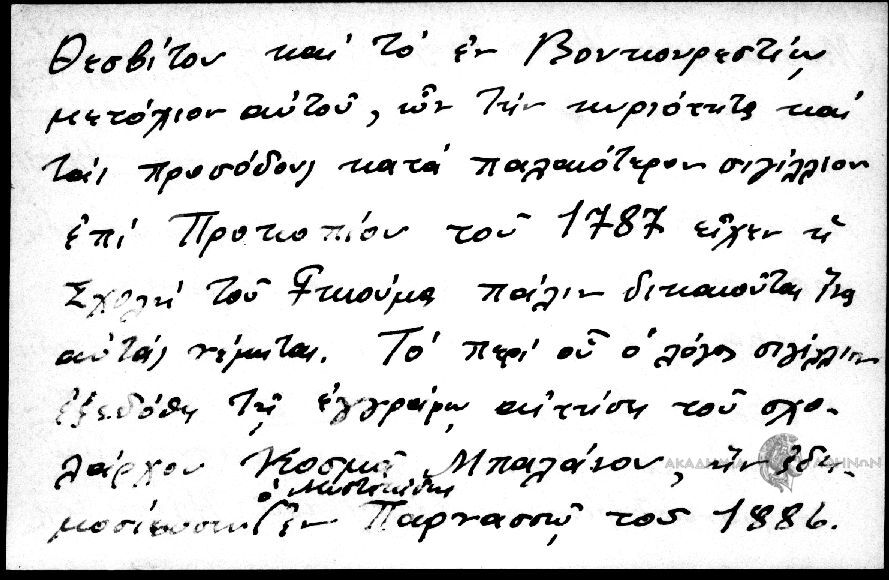 Θεσβίτου καὶ τὸ ἐν Βουκουρεστίῳ
μετόχιον αὐτοῦ, ὧν τὴν κυριότητα καὶ
τὰς προσόδους κατὰ παλαιότερον σιγίλλιον
ἐπὶ Προκοπίου τοῦ 1787 εἶχεν ἡ
Σχολὴ τοῦ Γκιούμα πάλιν δικαιοῦται ἵνα
αὐτὰς νέμηται. Τὸ περὶ οὗ ὁ λόγος σιγίλλιον
ἐξεδόθη τῇ ἐγγράφῳ αἰτήσει τοῦ σχο-
λάρχου Κοσμᾶ Μπαλάνου, ἣν ἐδη-
μοσίευσεν ὁ Μυστακίδης ἐν Παρνασσῷ τοῦ 1886.
ΑΚΑΔΗΜΙΑ ΑΘΗΝΩΝ